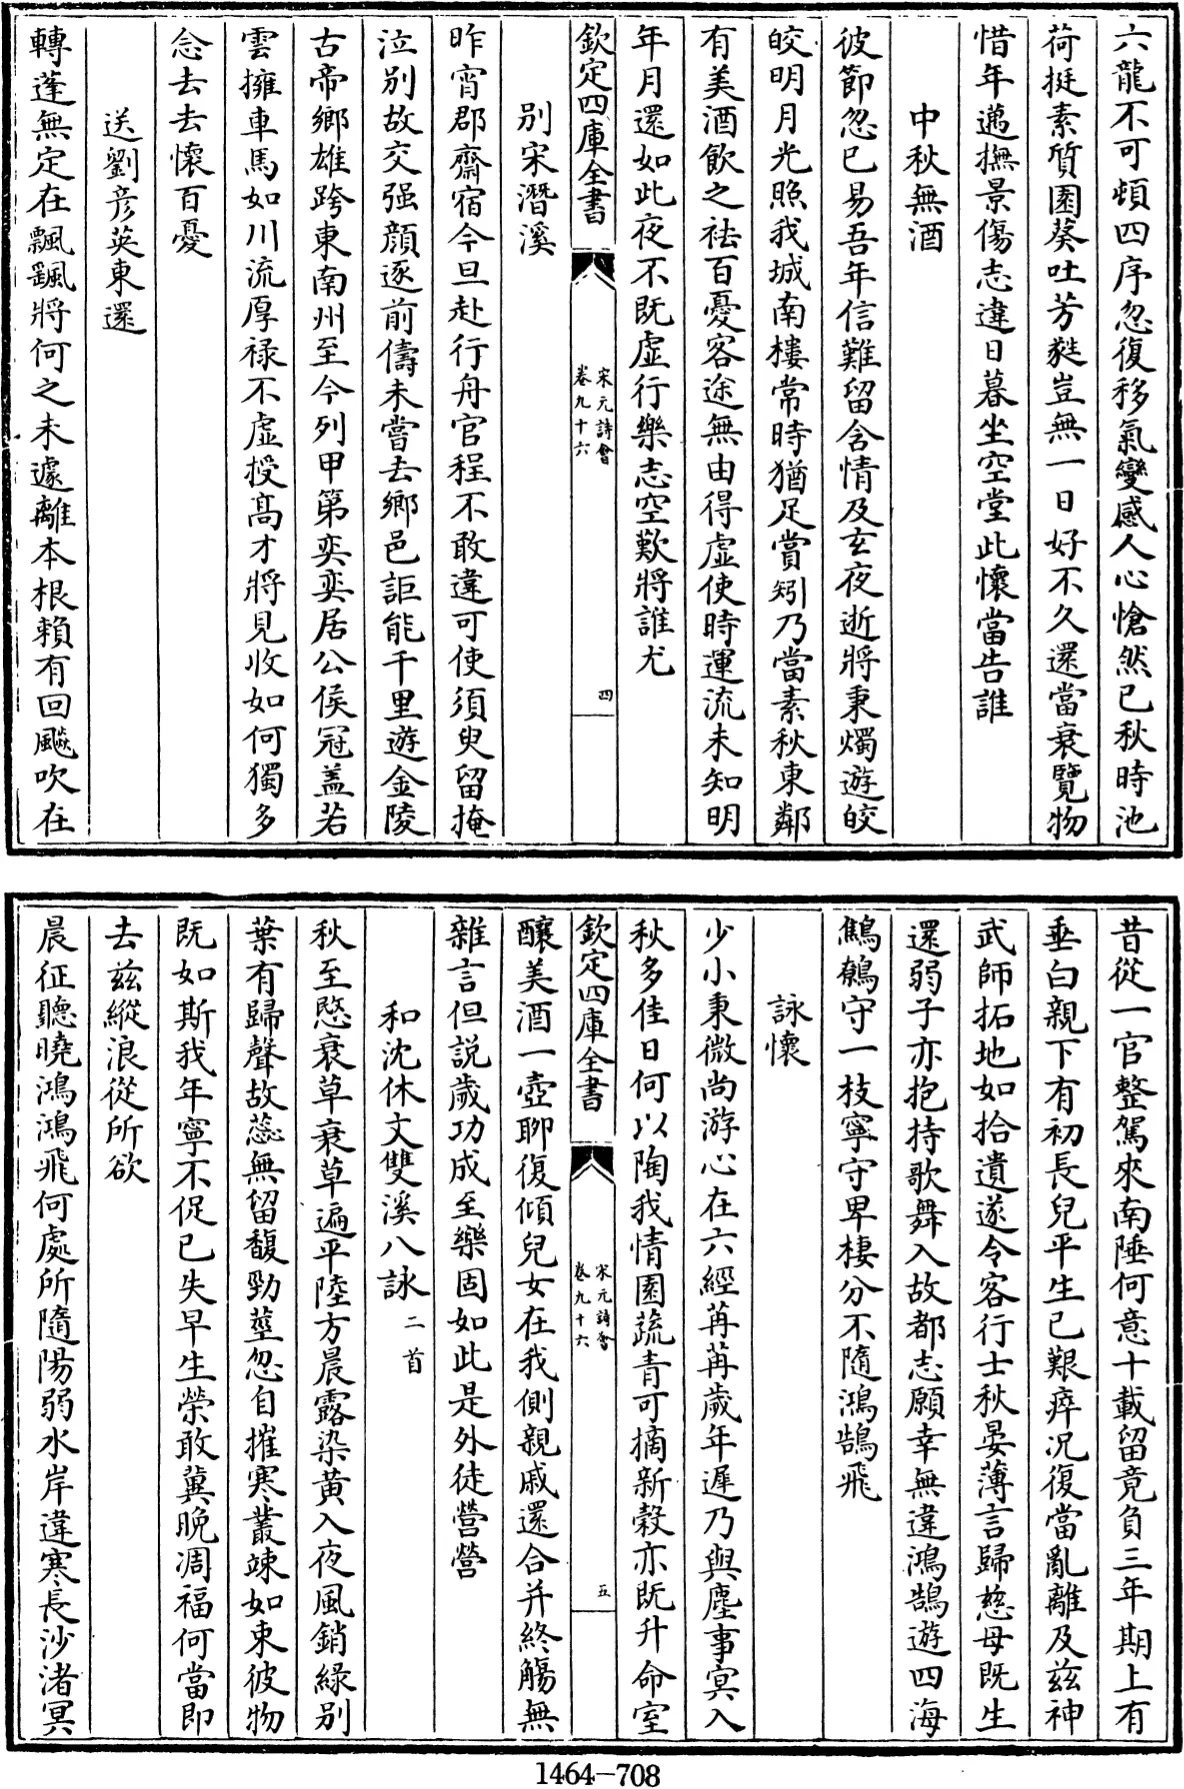 六龍不可頓四序忽復移氣變感人心愴然已秋時池
荷挺素質園葵吐芳蕤豈無一日好不久還當衰覽物
惜年邁撫景傷志違日暮坐空堂此懷當告誰
中秋無酒
彼節忽已易吾年信難留含情及玄夜逝將秉燭遊皎
皎明月光照我城南樓常時猶足賞矧乃當素秋東鄰
有美酒飲之祛百憂客途無由得虛使時運流未知明
年月還如此夜不既虛行樂志空歎將誰尤
欽定四庫全書
宋元詩會
卷九十六
四
别宋潛溪
昨宵郡齋宿今旦赴行舟官程不敢違可使須臾留掩
泣别故交强顔逐前儔未嘗去鄉邑詎能千里遊金陵
古帝鄉雄跨東南州至今列甲第奕奕居公侯冠盖若
雲擁車馬如川流厚禄不虚授髙才將見收如何獨多
念去去懷百憂
送劉彦英東還
轉蓬無定在飄颻將何之未遽離本根賴有回飇吹在
昔從一官整駕來南陲何意十載留竟負三年期上有
垂白親下有初長兒平生已艱瘁况復當亂離及兹神
武師拓地如拾遺遂令客行士秋晏薄言歸慈母既生
還弱子亦抱持歌舞入故都志願幸無違鴻鵠遊四海
鷦鷯守一枝寧守卑棲分不隨鴻鵠飛
詠懷
少小秉微尚游心在六經苒苒歲年遲乃與塵事冥入
秋多佳日何以陶我情園蔬青可摘新穀亦既升命室
欽定四庫全書
宋元詩會
卷九十六
五
釀美酒一壺聊復傾兒女在我側親戚還合并終觴無
雜言但説歲功成至樂固如此是外徒營營
和沈休文雙溪八詠二首
秋至愍衰草衰草遍平陸方晨露染黄入夜風銷緑别
葉有歸聲故蕊無留馥勁莖忽自摧寒叢竦如束彼物
既如斯我年寧不促已失早生榮敢冀晚凋福何當即
去兹縱浪從所欲
晨征聽曉鴻鴻飛何處所隨陽弱水岸違寒長沙渚冥
1464—708